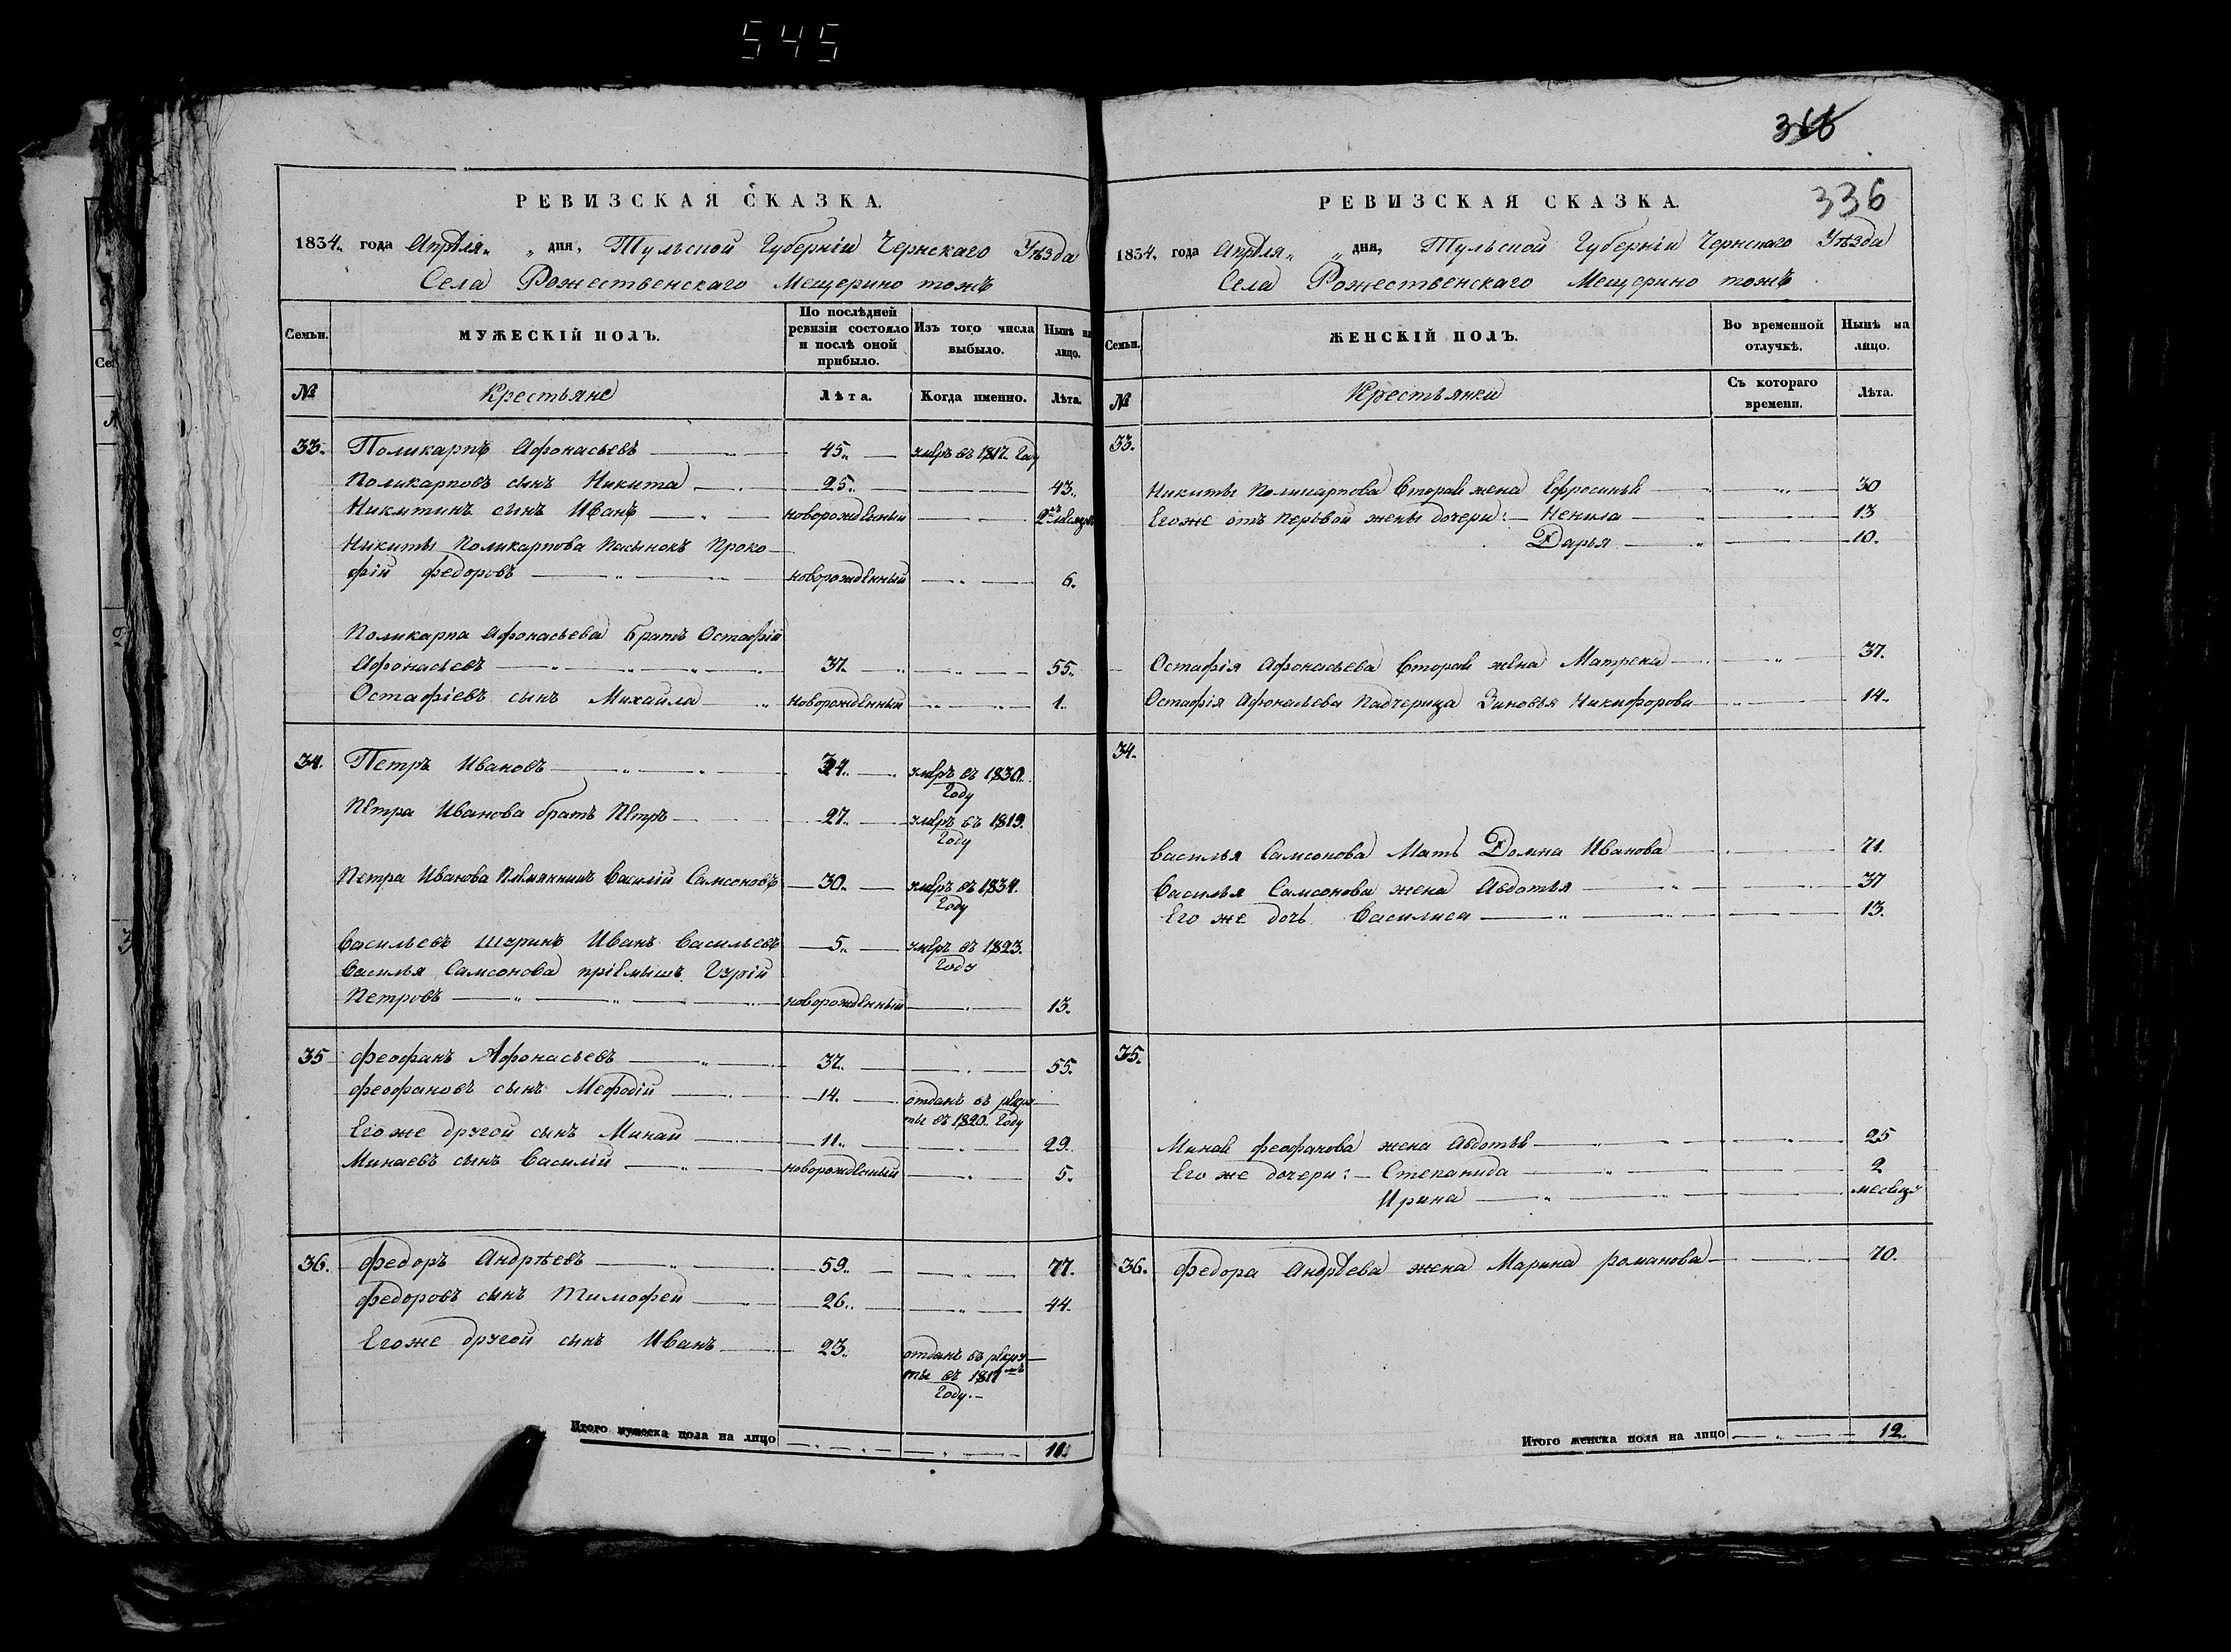 545
366
РЕВИЗСКАЯ СКАЗКА.
1834. года Апрѣля „ „ дня, Тульской Губерніи Чернскаго Уѣзда
Села Рожественскаго Мещерино тожъ
Семьи.
МУЖЕСКІЙ ПОЛЪ.
По послѣдней
ревизіи состояло
и послѣ оной
прибыло.
Изъ того числа
выбыло.
Нынѣ на
лицо.
№
Крестьяне
Лѣта.
Когда именно.
Лѣта.
33. Поликарпъ Афонасьевъ 45. умеръ въ 1817. Году
Поликарповъ сынъ Никита 25. 43.
Никитинъ сынъ Иванъ новорожденный 2 месяцовъ
Никиты Поликарпова Пасынокъ Проко-
фій Федоровъ новорожденный 6.
Поликарпа Афонасьева братъ Остафій
Афонасьевъ 37. 55.
Остафіевъ сынъ Михайла новорожденный 1.
34. Петръ Ивановъ умеръ въ 1830.
Году
Петра Иванова братъ Петръ 27. умеръ въ 1819.
Году
Петра Иванова Племянникъ Василій Самсоновъ 30. умеръ въ 1834.
Году
Васильевъ Шуринъ Иванъ Васильевъ 5. умеръ въ 1823.
Году
Василья Самсонова пріемышъ Гурій
Петровъ новорожденный 13.
35 Феофанъ Афонасьевъ 37. 55.
Феофановъ сынъ Мефодій 14. отданъ въ рекру-
ты въ 1820. Году
Его же другой сынъ Минай 11. 29.
Минаевъ сынъ Василій новорожденный 5.
36. Федоръ Андрѣевъ 59. 77.
Федоровъ сынъ Тимофей 26. 44.
Его же другой сынъ Иванъ 23. отданъ въ рекру-
ты въ 1817мъ
Году.
Итого мужеска пола на лицо 10.
РЕВИЗСКАЯ СКАЗКА.
336
1834. года Апрѣля „ „ дня, Тульской Губерніи Чернскаго Уѣзда
Села Рожественскаго Мещерино тожъ
Семьи.
ЖЕНСКІЙ ПОЛЪ.
Во временной
отлучкѣ.
Нынѣ на
лицо.
№
Крестьянки
Съ котораго
времени.
Лѣта.
33.
Никиты Поликарпова Вторая жена Ефросинья 30
Его же отъ первой жены дочери: Ненила 13
Дарья 10.
Остафія Афонасьева Вторая жена Матрена 37.
Остафія Афонасьева Падчерица Зиновья Никифорова 14.
34.
Василья Самсонова Мать Домна Иванова 71.
Василья Самсонова жена Авдотья 37
Его же дочь Василиса 13.
35.
Миная Феофанова жена Авдотья 25
Его же дочери: Степанида 2
Ирина месяцъ
36. Федора Андрѣева жена Марина Романова 70.
Итого женска пола на лицо 12.